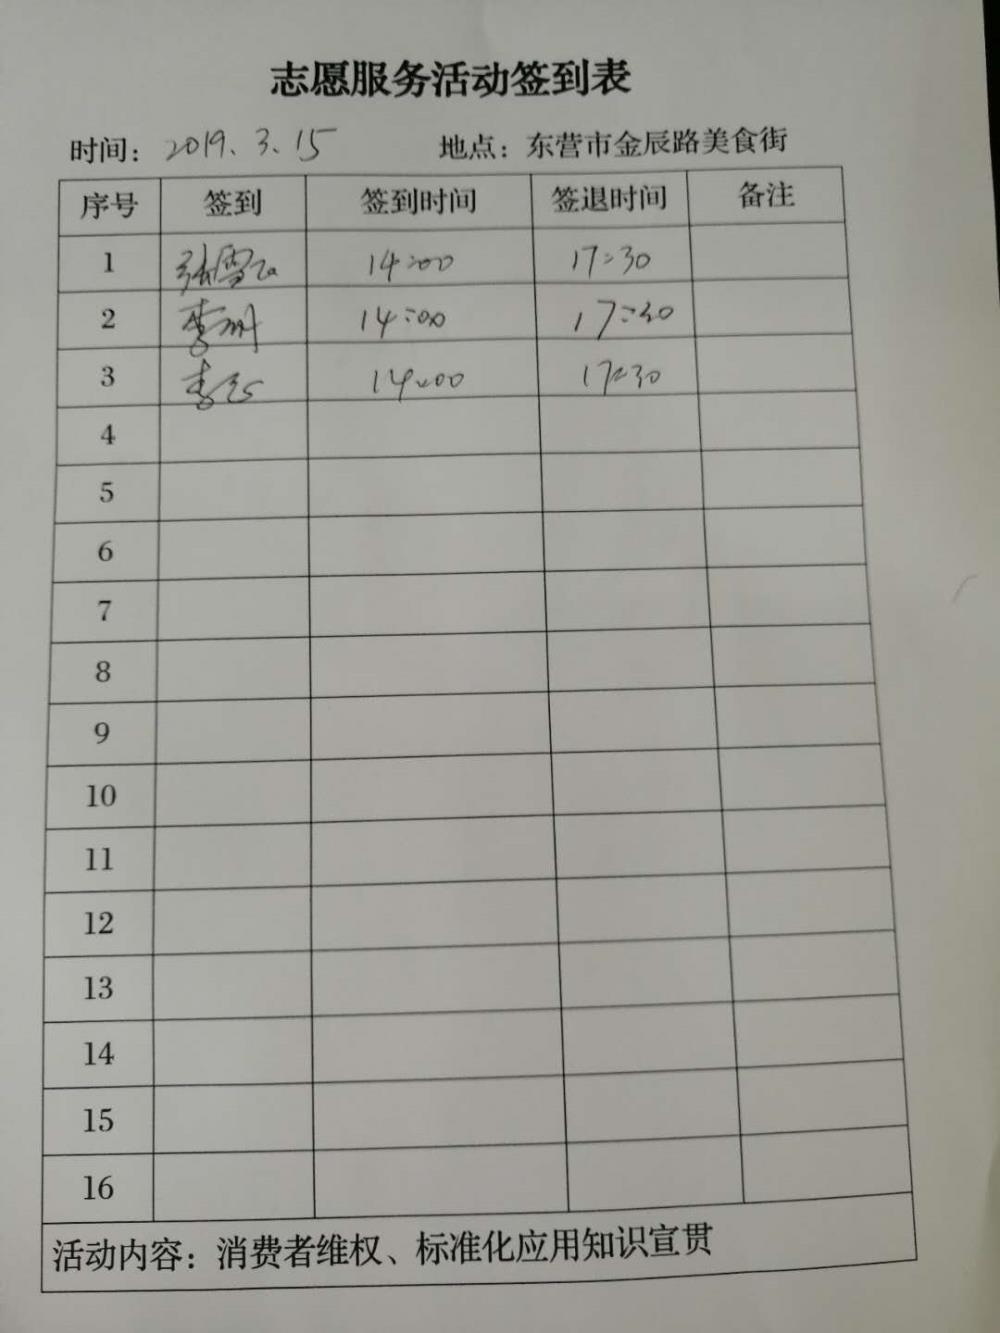 志愿服务活动签到表
时间：2019.3.15 地点：东营市金辰路美食街
序号 签到 签到时间 签退时间 备注
1 张雪 14:00 17:30
2 李 14:00 17:30
3 李 14:00 17:30
4
5
6
7
8
9
10
11
12
13
14
15
16
活动内容：消费者维权、标准化应用知识宣贯